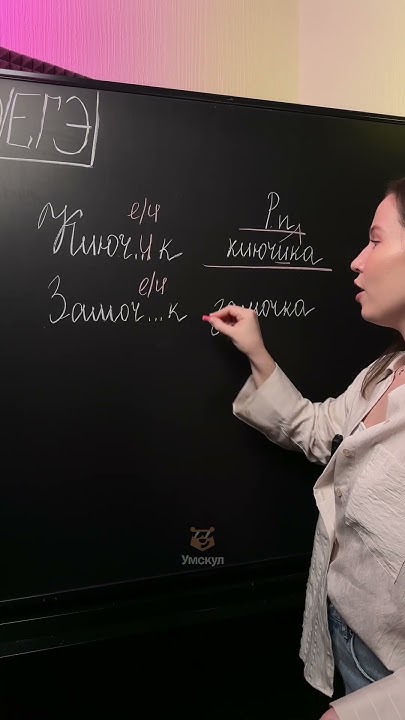 /ЕГЭ
е/и
Ключ..и к
Р.п
ключика
е/и
Замоч...к замочка
Умскул